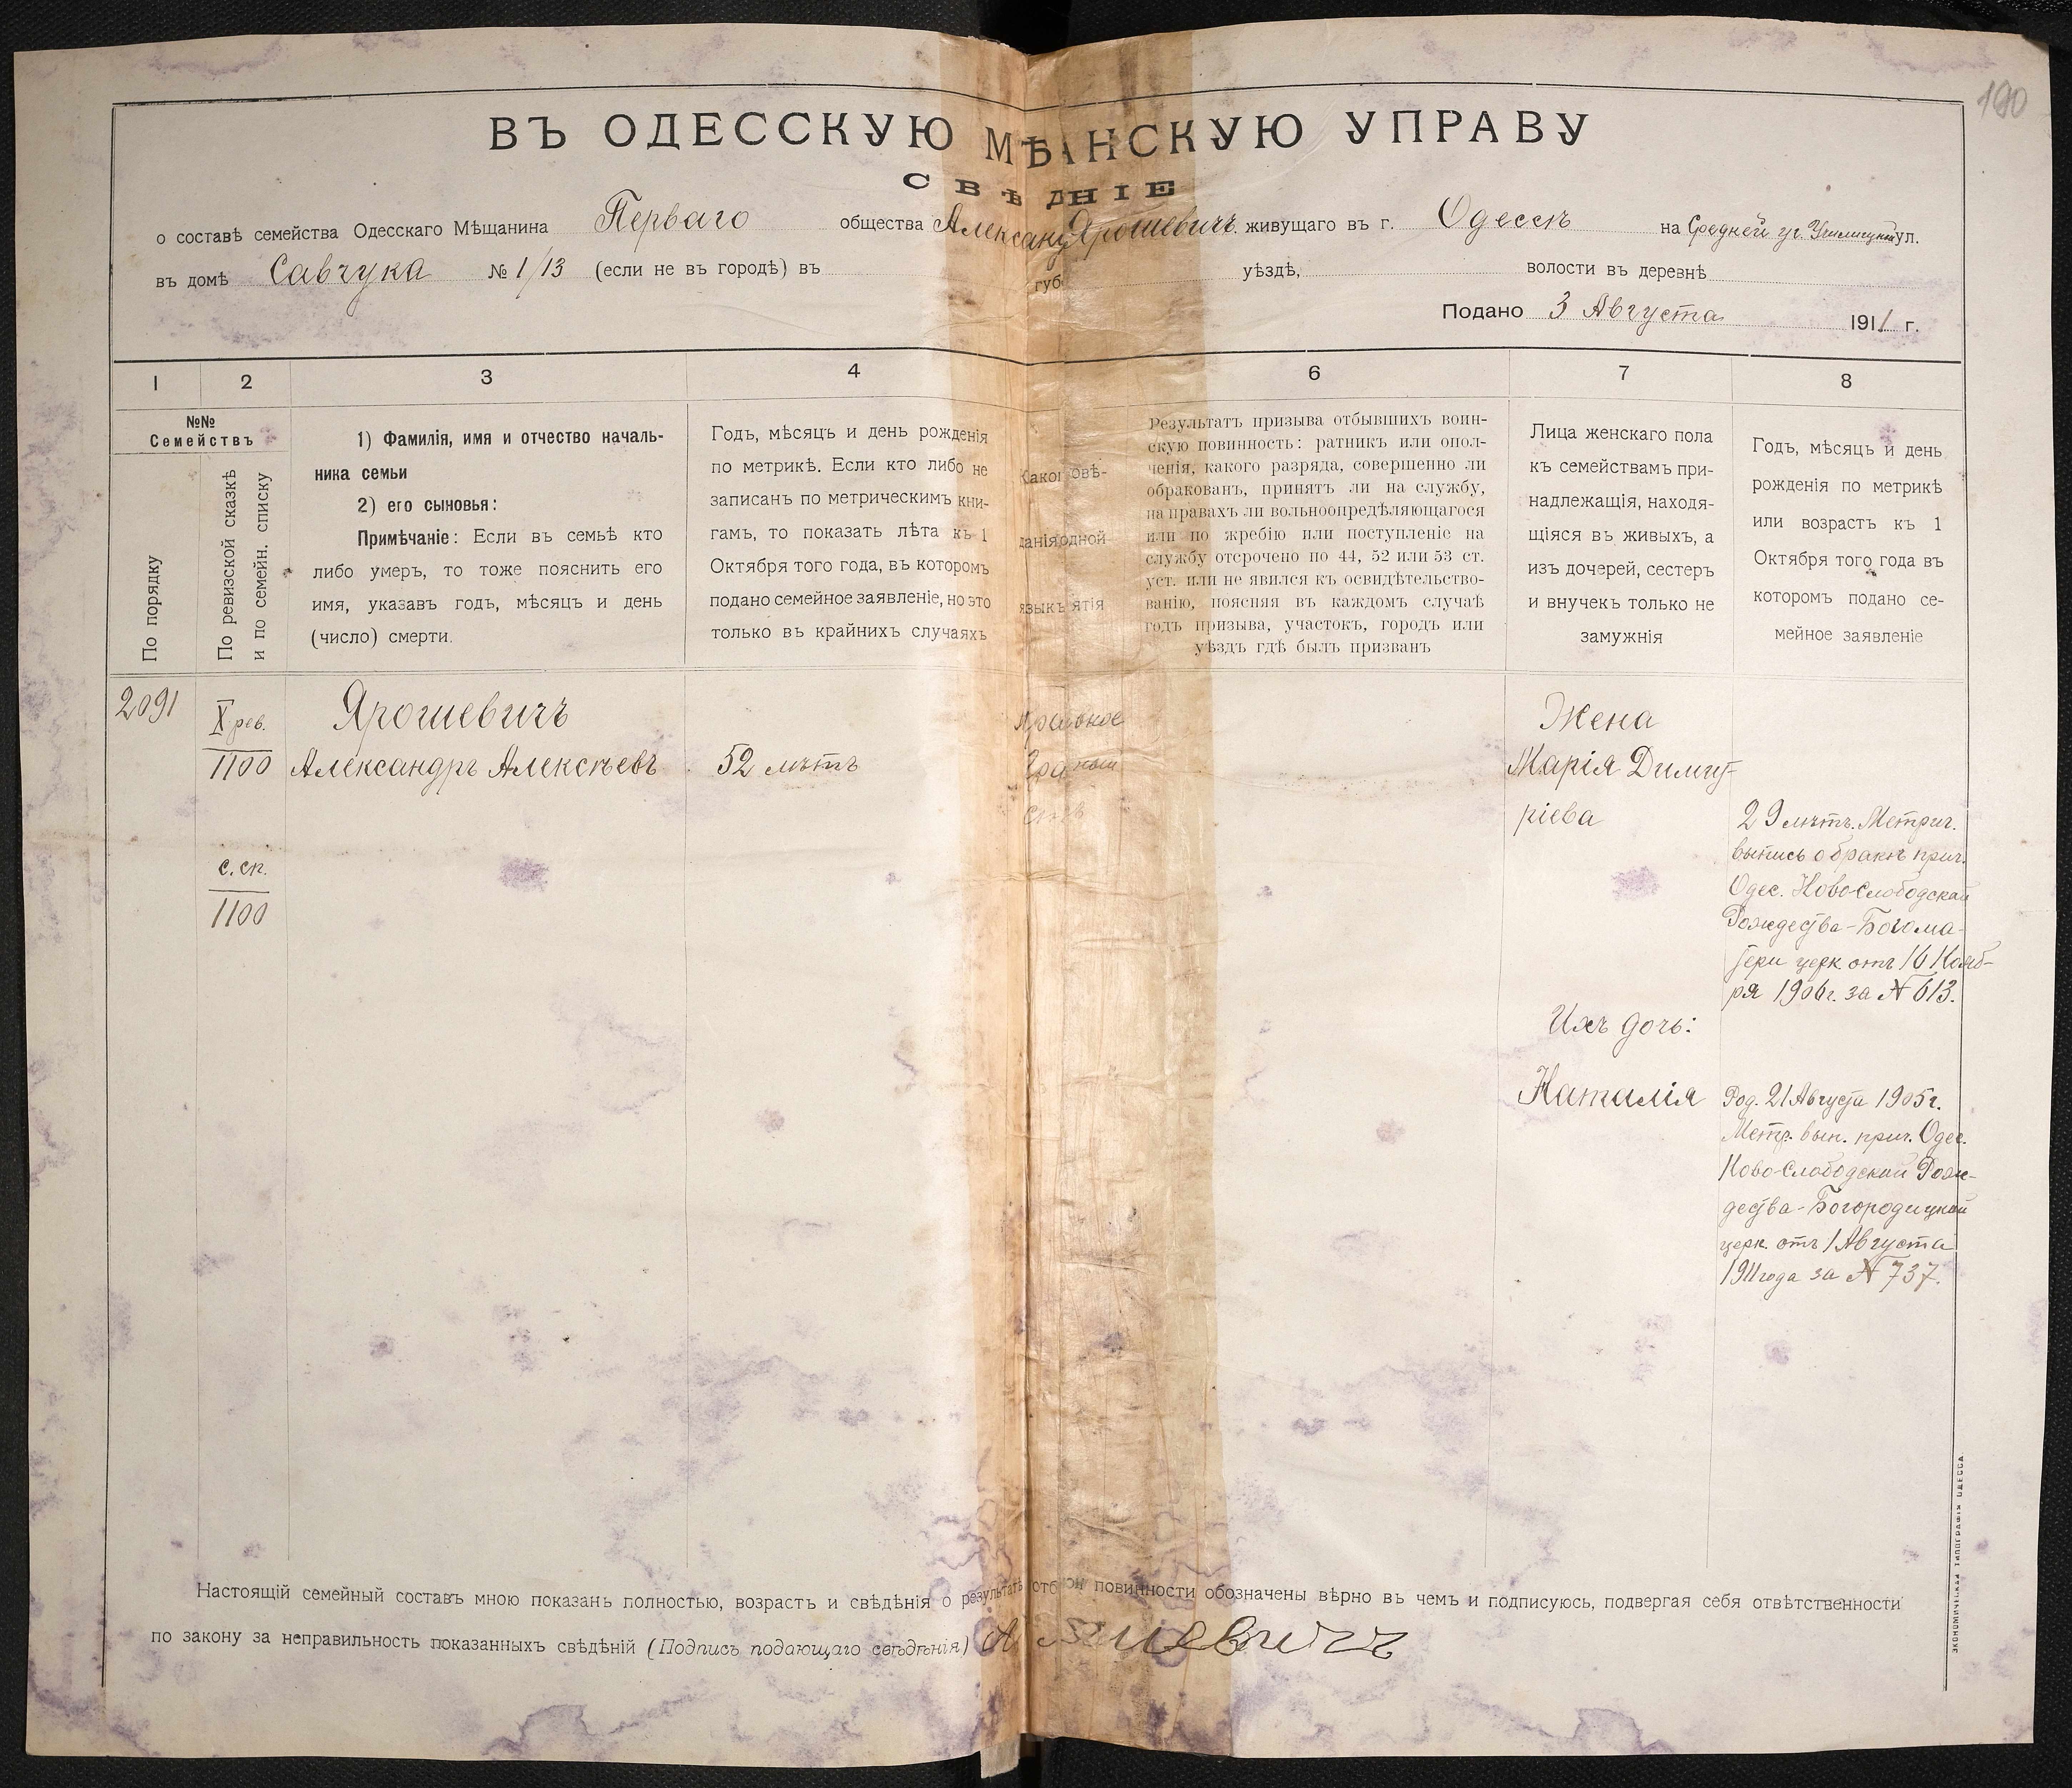 190
ВЪ ОДЕССКУЮ МѢ НСКУЮ УПРАВУ
СВѢ ДНІЕ
о составѣ семейства Одесскаго Мѣщанина Перваго общества Александ Ярошевичъ живущаго въ г. Одессѣ на Средней уг. ул.
въ домѣ Савчука № 1/13 (если не въ городѣ) въ губ уѣздѣ, волости въ деревнѣ
Подано 3 Августа 1911 г.
1 2 3 4 6 7 8
№№
Семействъ
По порядку
По ревизской сказкѣ
и по семейн. списку
1) Фамилія, имя и отчество началь-
ника семьи
2) его сыновья:
Примѣчаніе: Если въ семьѣ кто
либо умеръ, то тоже пояснить его
имя, указавъ годъ, мѣсяцъ и день
(число) смерти.
Годъ, мѣсяцъ и день рожденія
по метрикѣ. Если кто либо не
записанъ по метрическимъ кни-
гамъ, то показать лѣта къ 1
Октября того года, въ которомъ
подано семейное заявленіе, но это
только въ крайнихъ случаяхъ
Како овѣ-
данія одной
языкъ ятія
Результатъ призыва отбывшихъ воин-
скую повинность: ратникъ или опол-
ченія, какого разряда, совершенно ли
обракованъ, принятъ ли на службу,
на правахъ ли вольноопредѣляющагося
или по жребію или поступленіе на
службу отсрочено по 44, 52 или 53 ст.
уст. или не явился къ освидѣтельство-
ванію, поясняя въ каждомъ случаѣ
годъ призыва, участокъ, городъ или
уѣздъ гдѣ былъ призванъ
Лица женскаго пола
къ семействамъ при-
надлежащія, находя-
щіяся въ живыхъ, а
изъ дочерей, сестеръ
и внучекъ только не
замужнія
Годъ, мѣсяцъ и день
рожденія по метрикѣ
или возрастъ къ 1
Октября того года въ
которомъ подано се-
мейное заявленіе
2091
X рев.
1100
с. сп.
1100
Ярошевичъ
Александръ Алексѣевъ
52 лѣтъ
Жена
Марія Димит-
ріева
29 лѣтъ. Метрич.
выпись о бракѣ прич.
Одес. Ново-Слободской
Рождества-Богома-
тери церк. отъ 16 Нояб-
ря 1906 г. за № 613.
Ихъ дочь:
Наталія
Род. 21 Августа 1905 г.
Метр. вып. прич. Одес.
Ново-Слободской Рож-
дества-Богородицкой
церк. отъ 1 Августа
1911 года за № 737.
Настоящій семейный составъ мною показанъ полностью, возрастъ и свѣдѣнія о результатѣ отб повинности обозначены вѣрно въ чемъ и подписуюсь, подвергая себя отвѣтственности
по закону за неправильность показанныхъ свѣдѣній (Подпись подающаго свѣдѣнія) А шевичъ
ЭКОНОМИЧЕСКАЯ ТИПОГРАФІЯ ОДЕССА